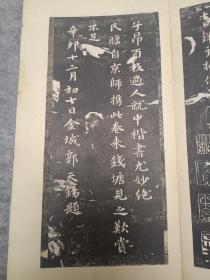 子昂百技過人就中楷書尤妙絶
民瞻自京師携此卷来錢塘見之歎賞
不足
辛卯十二月初十日金城郭天錫題